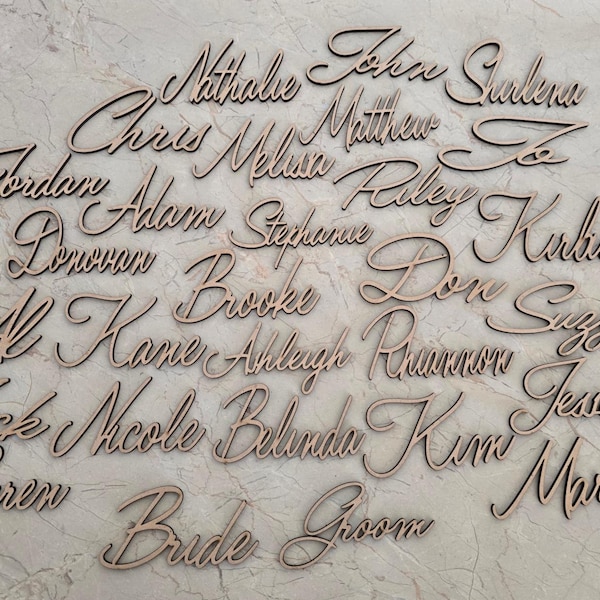 Nathalie John Shirlena
Chris Melissa Matthew Jo
Jordan Adam Stephanie Riley Kirbi
Donovan Brooke Don Suzz
Al Kane Ashleigh Rhiannon Jess
ck Nicole Belinda Kim Mar
ren
Bride Groom